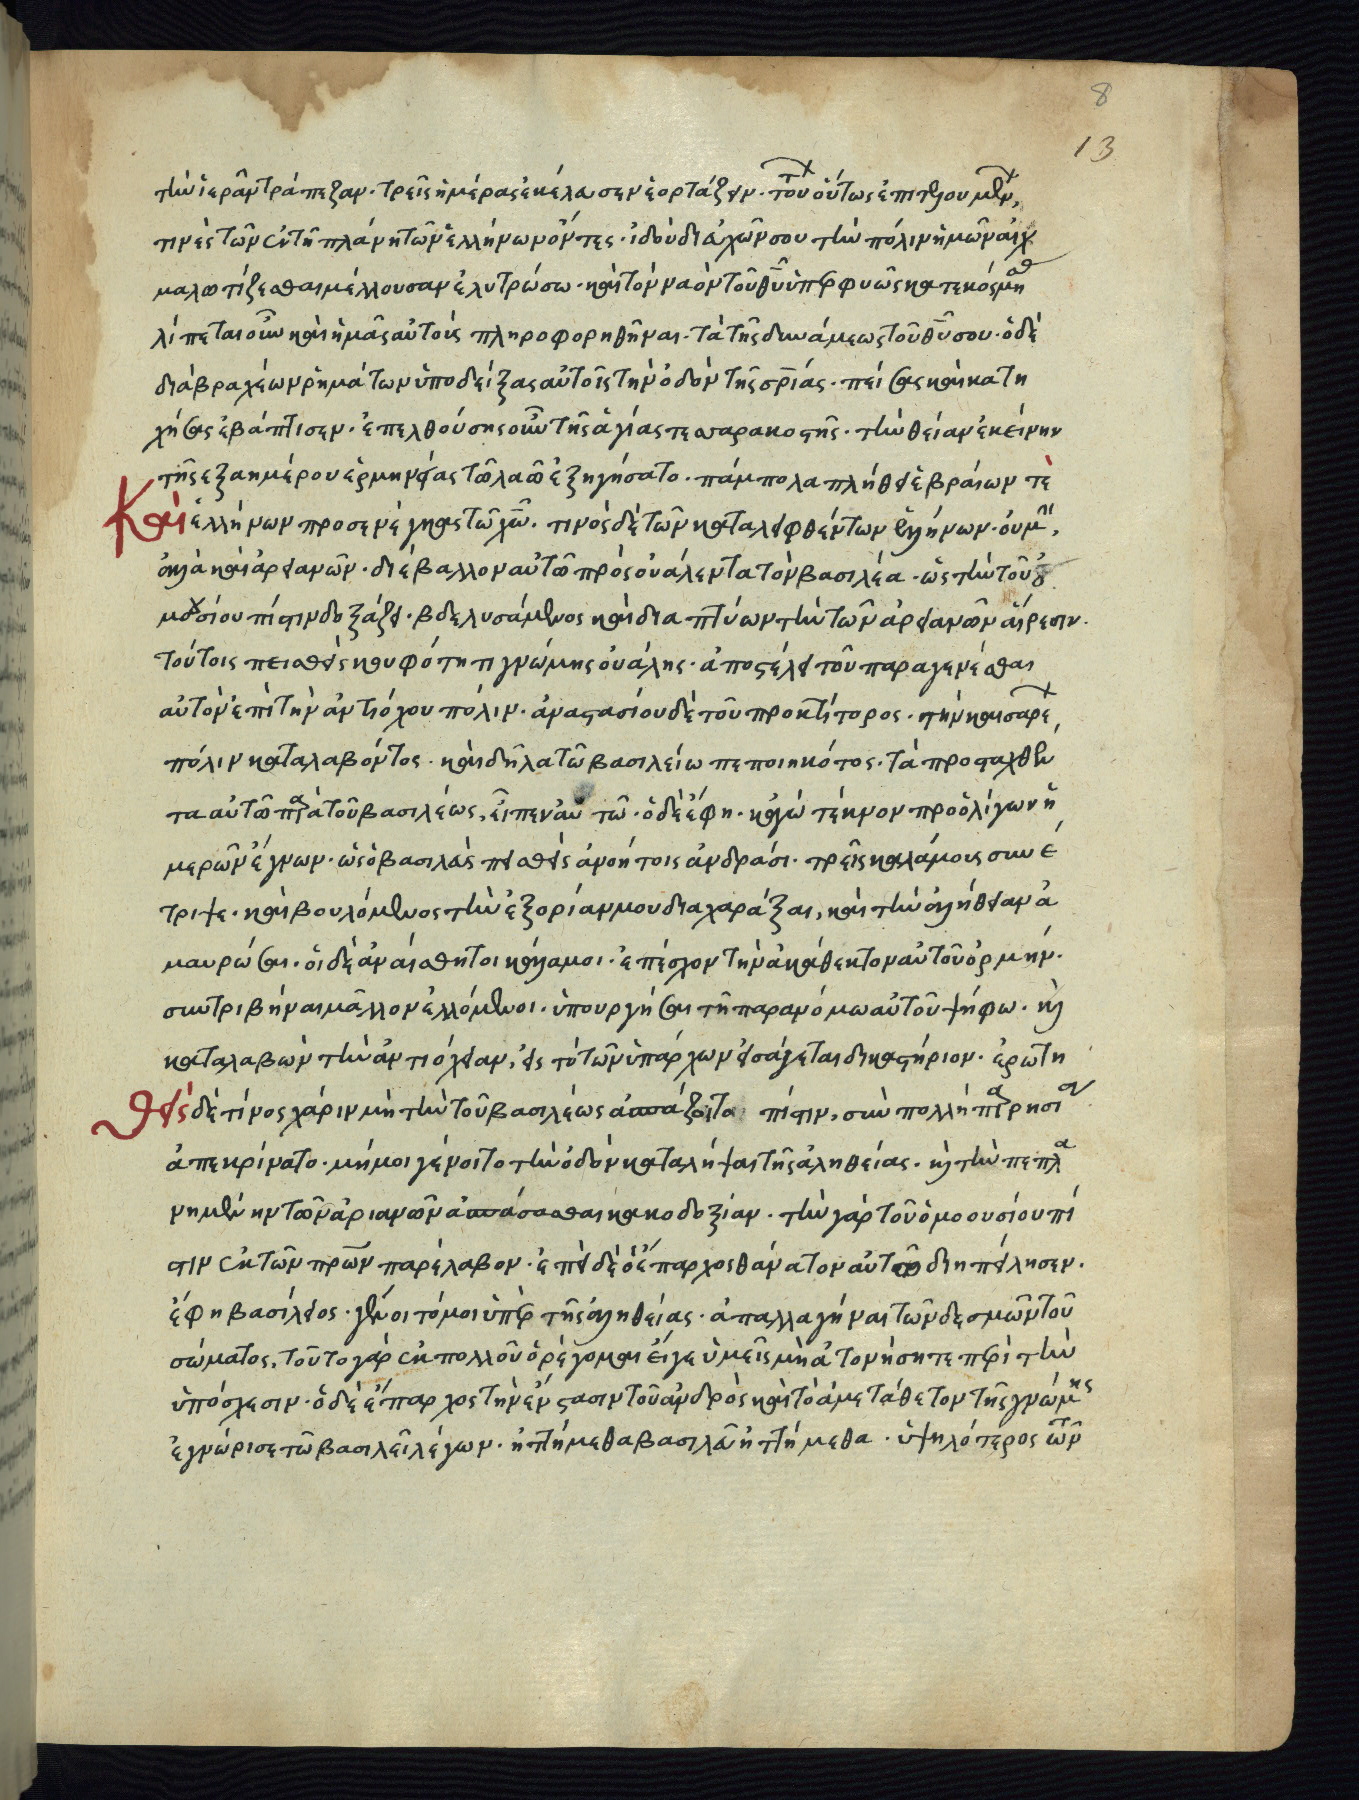 8
13
τὴν ἱερὰν τράπεζαν· τρεῖς ἡμέρας ἐκέλευσεν ἑορτάζειν. τούτου οὕτως ἐπιτελουμένου,
τινὲς τῶν ἐν τῇ πλάνῃ τῶν ἑλλήνων ὄντες· ἰδοὺ δι' εὐχῶν σου τὴν πόλιν ἡμῶν αἰχ
μαλωτίζεσθαι μέλλουσαν ἐλυτρώσω· καὶ τὸν ναὸν τοῦ θῦ ὑπερφυῶς κατεκόσμησας
λίπεται οὖν καὶ ἡμᾶς αὐτοὺς πληροφορηθῆναι· τὰ τῆς δυνάμεως τοῦ θῦ σου· ὁ δὲ
διὰ βραχέων ῥημάτων ὑποδείξας αὐτοῖς τὴν ὁδὸν τῆς σρίας· πείσας καὶ κατη
χήσας ἐβάπτισεν· ἐπελθούσης οὖν τῆς ἁγίας τεσσαρακοστῆς· τὴν θείαν ἐκείνην
τῆς ἑξαημέρου ἑρμηνείας τῷ λαῷ ἐξηγήσατο· πάμπολα πλήθει ἑβραίων τὲ
Καὶ ἑλλήνων προσενέγκας τῷ χῷ. τινὸς δὲ τῶν καταλειφθέντων ἑλλήνων· οὐ μὴν,
ἀλλὰ καὶ ἀρειανῶν· διέβαλλον αὐτῷ πρὸς οὐάλεντα τὸν βασιλέα· ὡς τὴν τοῦ ὁ
μοουσίου πίστιν δοξάζει· βδελυσάμενος καὶ διαπτύων τὴν τῶν ἀρειανῶν αἵρεσιν.
τούτοις πεισθεὶς κουφότητι γνώμης οὐάλης· ἀποστέλει τοῦ παραγενέσθαι
αὐτὸν ἐπὶ τὴν ἀντιόχου πόλιν· ἀναστασίου δὲ τοῦ προκτίτορος· τὴν καισαρέων
πόλιν καταλαβόντος· καὶ δῆλα τῷ βασιλείω πεποιηκότος· τὰ προσταχθέν
τα αὐτῷ παρὰ τοῦ βασιλέως, εἶπεν αὐτῷ· ὁ δὲ ἔφη· κἀγὼ τέκνον πρὸ ὀλίγων ἡ
μερῶν ἔγνων· ὡς ὁ βασιλεὺς πεισθεὶς ἀνοήτοις ἀνδράσι· τρεῖς καλάμους συνέ
τριψε· καὶ βουλόμενος τὴν ἐξορίαν μου διαχαράξαι, καὶ τὴν ἀλήθειαν ἀ
μαυρώσαι· οἱ δὲ ἀναίσθητοι κάλαμοι· ἐπέσχον τὴν ἀκάθεκτον αὐτοῦ ὁρμήν.
συντριβήναι μᾶλλον ἑλλόμενοι· ὑπουργήσαι τῇ παρανόμω αὐτοῦ ψήφω· καὶ
καταλαβὼν τὴν ἀντιόχειαν, εἰς τὸ τῶν ὑπάρχων εἰσάγεται δικαστήριον· ἐρωτη
θεὶς δὲ τίνος χάριν μὴ τὴν τοῦ βασιλέως ἀσπάζοιτο πίστιν, σὺν πολλῇ παρρησίᾳ
ἀπεκρίνατο· μή μοι γένοιτο τὴν ὁδὸν καταλήψαι τῆς ἀληθείας· καὶ τὴν πεπλα
νημένην τῶν ἀριανῶν ἀσπάσασθαι κακοδοξίαν· τὴν γὰρ τοῦ ὁμοουσίου πί
στιν ἐκ τῶν πρων παρέλαβον· ἐπεὶ δὲ ὁ ἔπαρχος θάνατον αὐτῷ διηπείλησεν.
ἔφη βασίλειος· γένοιτό μοι ὑπὲρ τῆς ἀληθείας· ἀπαλλαγήναι τῶν δεσμῶν τοῦ
σώματος, τοῦτο γὰρ ἐκ πολλοῦ ὀρέγομαι εἴγε ὑμεῖς μὴ ἀτονήσητε περὶ τὴν
ὑπόσχεσιν· ὁ δὲ ἔπαρχος τὴν ἔνστασιν τοῦ ἀνδρὸς καὶ τὸ ἀμετάθετον τῆς γνώμης
ἐγνώρισε τῷ βασιλεῖ λέγων· ἡττήμεθα βασιλεῦ ἡττήμεθα· ὑψηλότερος ὧν